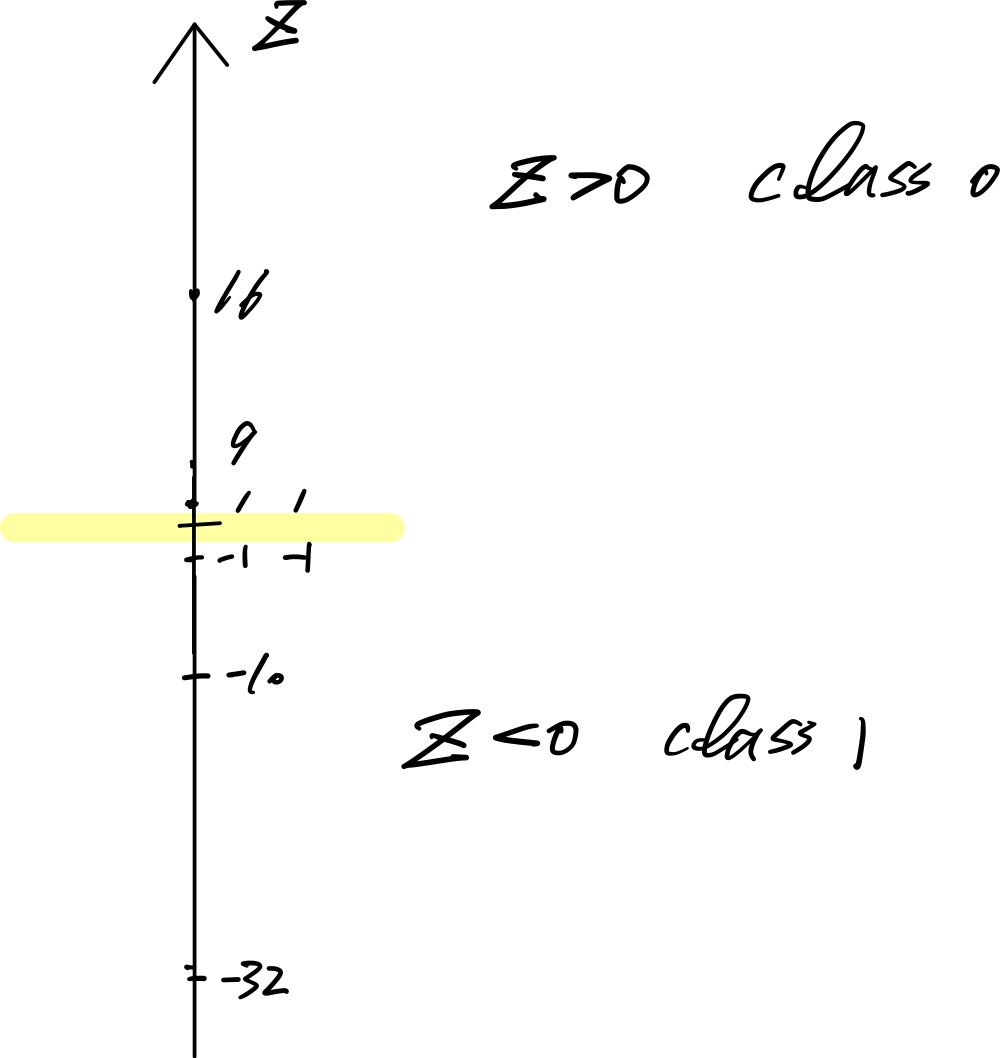 Z
Z>0 class 0
16
9
1 1
-1 -1
-10
Z<0 class 1
-32